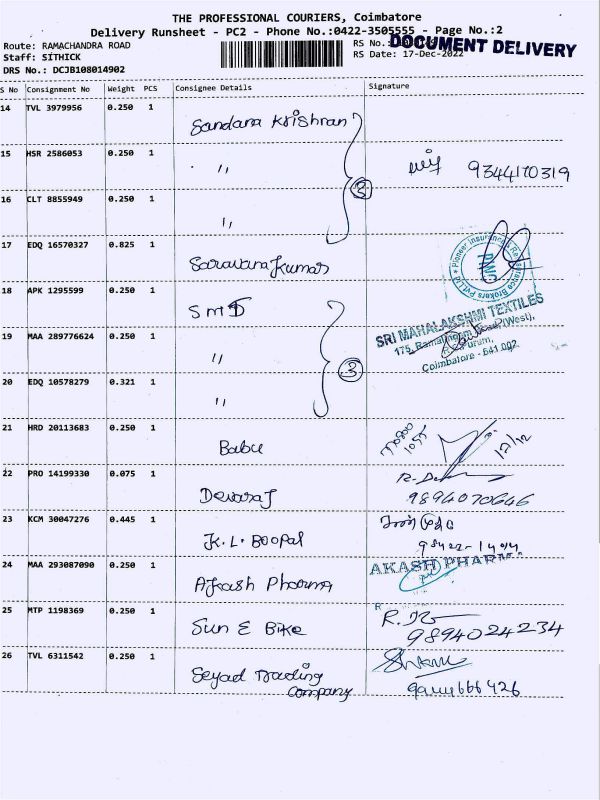 THE PROFESSIONAL COURIERS, Coimbatore
Delivery Runsheet - PC2 - Phone No.:0422-3505555 - Page No.:2
Route: RAMACHANDRA ROAD
RS No.:
DOCUMENT DELIVERY
Staff: SITHICK
RS Date: 17-Dec-2022
DRS No.: DCJB108014902
S No Consignment No Weight PCS Consignee Details Signature
14 TVL 3979956 0.250 1 Sandara Krishnan
15 HSR 2586053 0.250 1 ,, 9344170319
16 CLT 8855949 0.250 1 ,, 3
17 EDQ 16570327 0.825 1 Saravana Kumar
Pioneer Insurance & Reinsurance Brokers Pvt Ltd
18 APK 1295599 0.250 1 SMD
SRI MAHALAKSHMI TEXTILES
19 MAA 289776624 0.250 1 ,,
175, (West),
Coimbatore - 641 002
20 EDQ 10578279 0.321 1 ,, 3
21 HRD 20113683 0.250 1 Babu 17/12
22 PRO 14199330 0.075 1 Devaraj
9894070646
23 KCM 30047276 0.445 1 K.L. Boopal
24 MAA 293087090 0.250 1 Akash Pharma
AKASH PHARMA
25 MTP 1198369 0.250 1 Sun E Bike
9894024234
26 TVL 6311542 0.250 1 Seyad Trading
Company